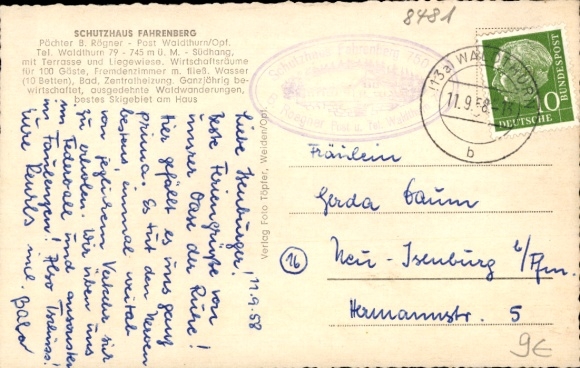 8481
SCHUTZHAUS FAHRENBERG
Pächter B. Rögner - Post Waldthurn/Opf.
Tel. Waldthurn 79 - 745 m ü. M. - Südhang,
mit Terrasse und Liegewiese. Wirtschaftsräume
für 100 Gäste, Fremdenzimmer m. fließ. Wasser
(10 Betten), Bad, Zentralheizung. Ganzjährig be-
wirtschaftet, ausgedehnte Waldwanderungen,
bestes Skigebiet am Haus
Schutzhaus Fahrenberg
(13a) WALDTHURN
11.9.58
b
DEUTSCHE BUNDESPOST
10
11.9.58
Liebe Isenburger!
Feriengrüße von
unserer Oase der Ruhe!
Hier gefällt es uns ganz
prima. Es tut den Nerven
bestens, einmal weitab
von jeglichem Verkehr sich
zu erholen. Wir üben uns
im Federball und ansonsten
im Faulenzen! Also Tschüss!
Eure
Verlag Foto Töpfer, Weiden/Opf.
Fräulein
Gerda Daum
16
Neu-Isenburg b/Ffm.
Hermannstr. 5
9€